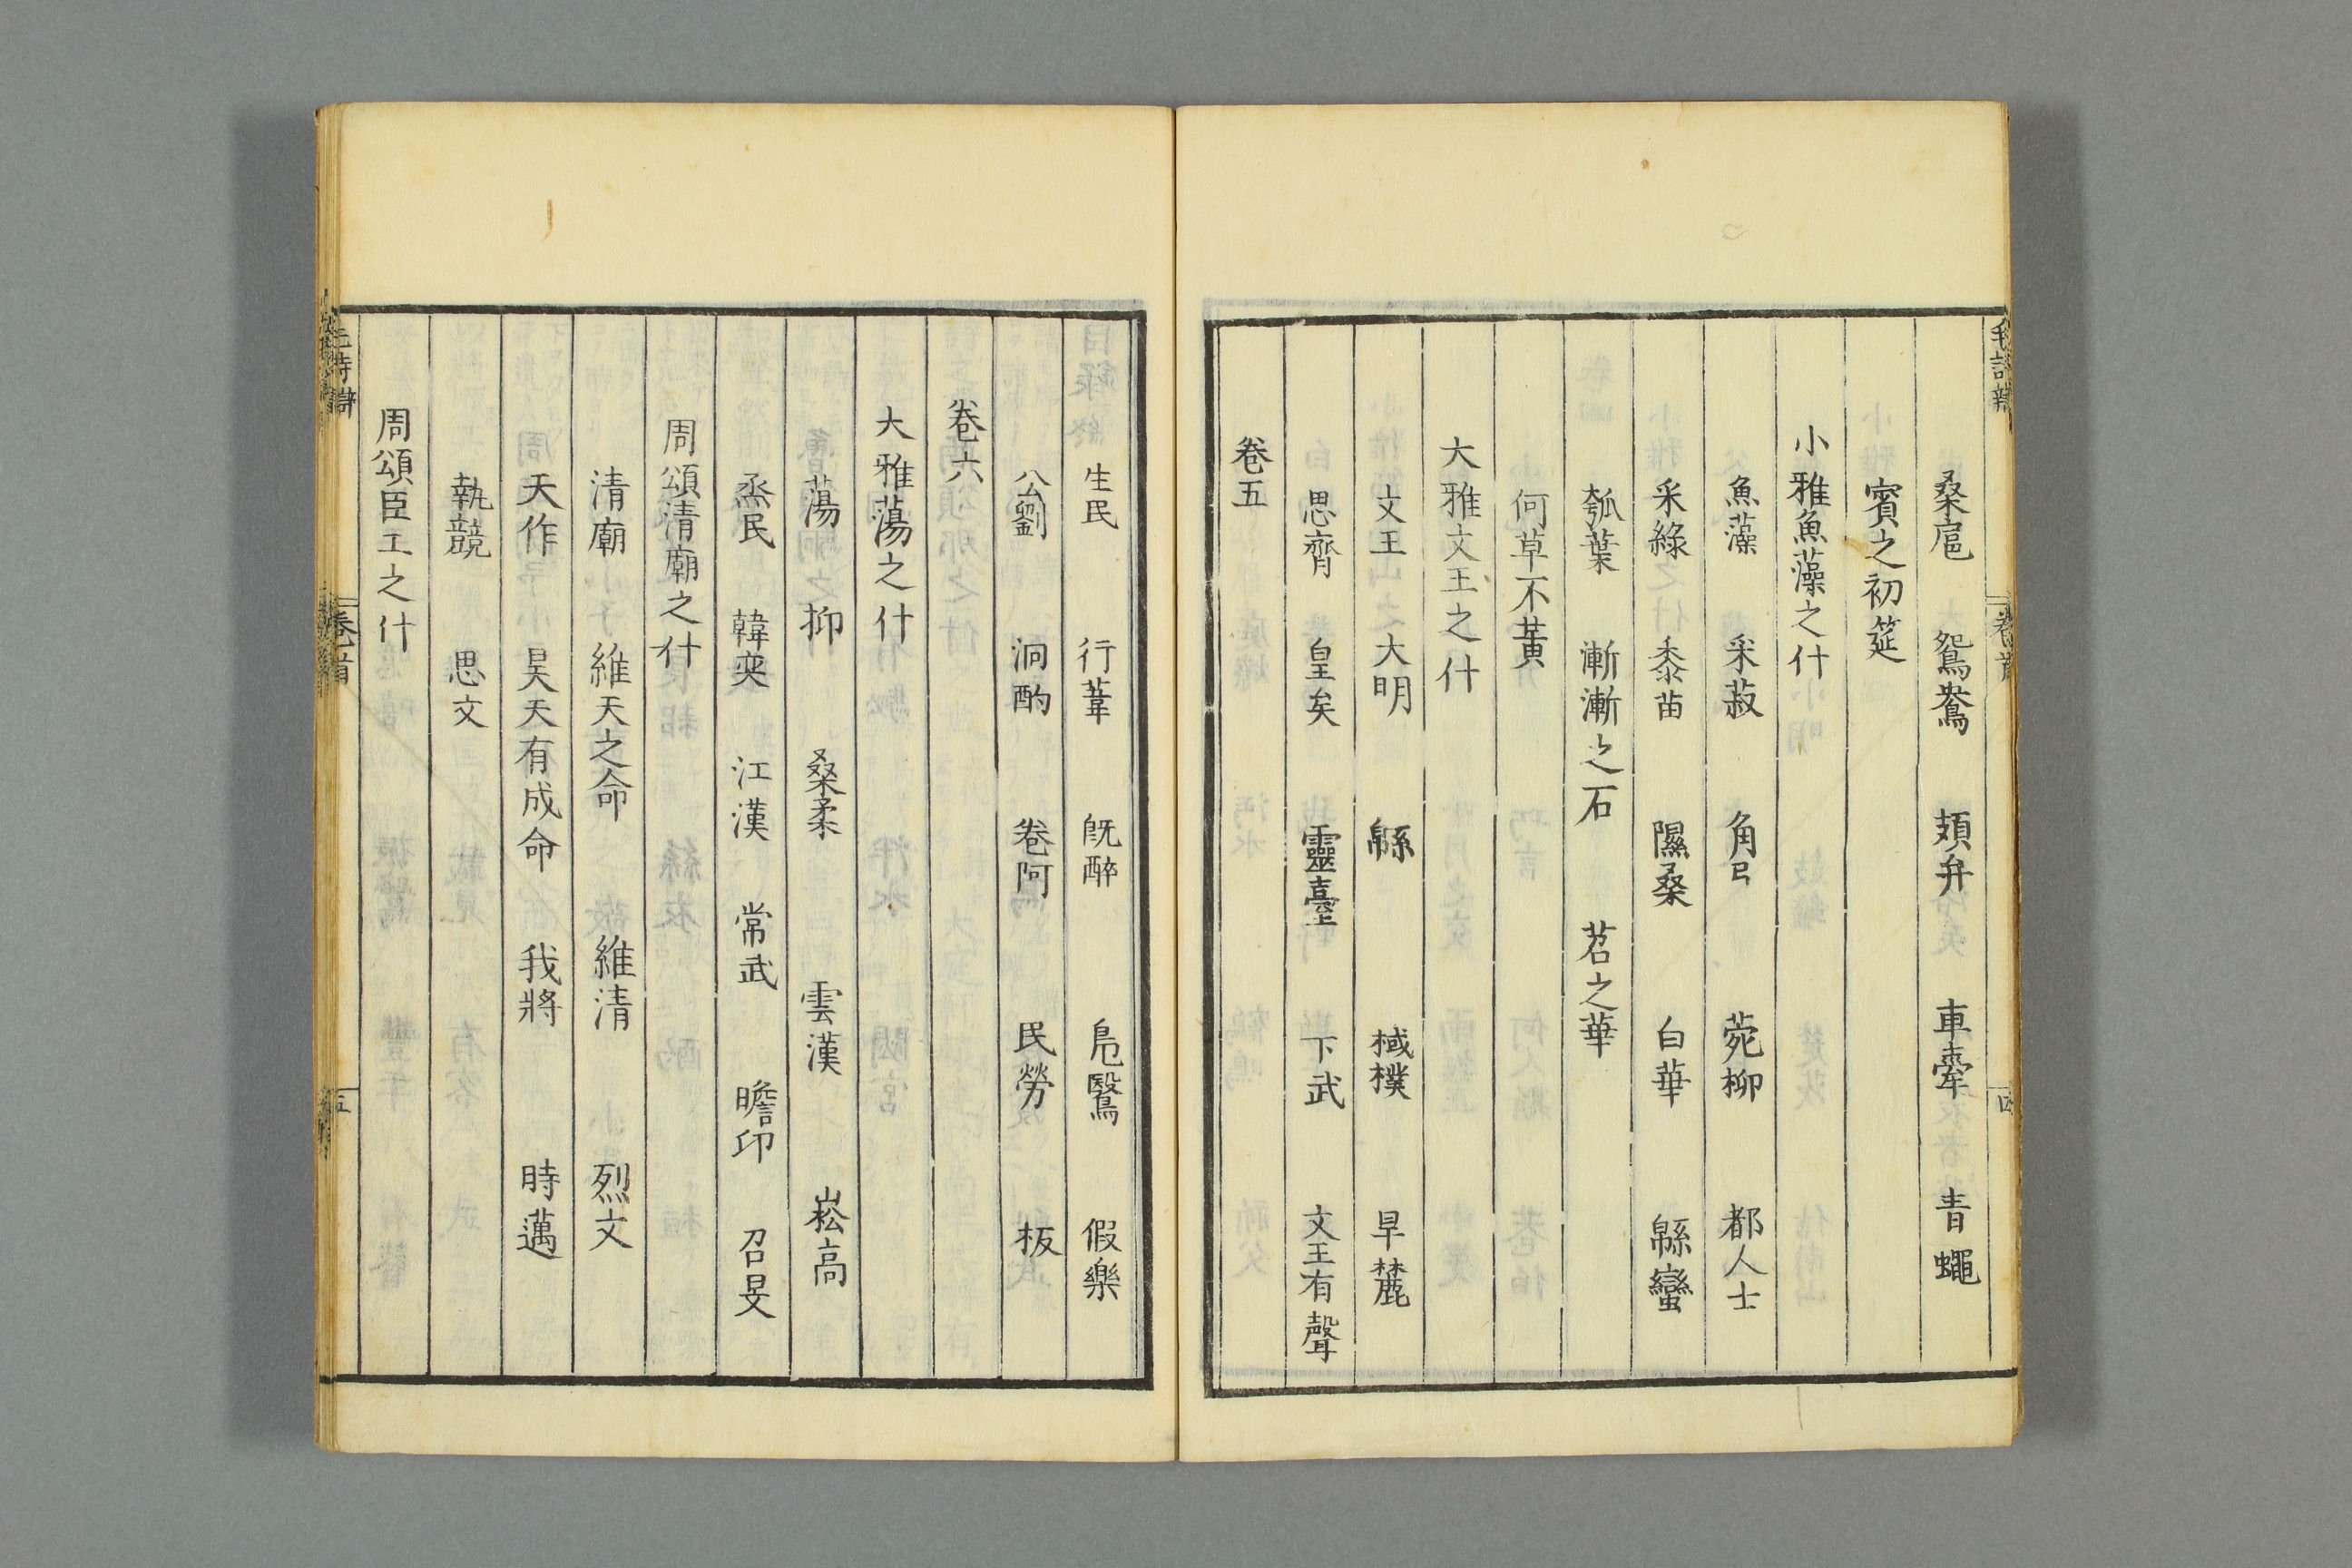 桑扈 鴛鴦 頍弁 車舝 青蠅
賓之初筵
小雅魚藻之什
魚藻 采菽 角弓 菀柳 都人士
采綠 黍苗 隰桑 白華 緜蠻
瓠葉 漸漸之石 苕之華
何草不黃
大雅文王之什
文王 大明 緜 棫樸 旱麓
思齊 皇矣 靈臺 下武 文王有聲
卷五
生民 行葦 旣醉 鳧鷖 假樂
公劉 泂酌 卷阿 民勞 板
卷六
大雅蕩之什
蕩 抑 桑柔 雲漢 崧高
烝民 韓奕 江漢 常武 瞻卬 召旻
周頌清廟之什
清廟 維天之命 維清 烈文
天作 昊天有成命 我將 時邁
執競 思文
周頌臣工之什
卷首
五